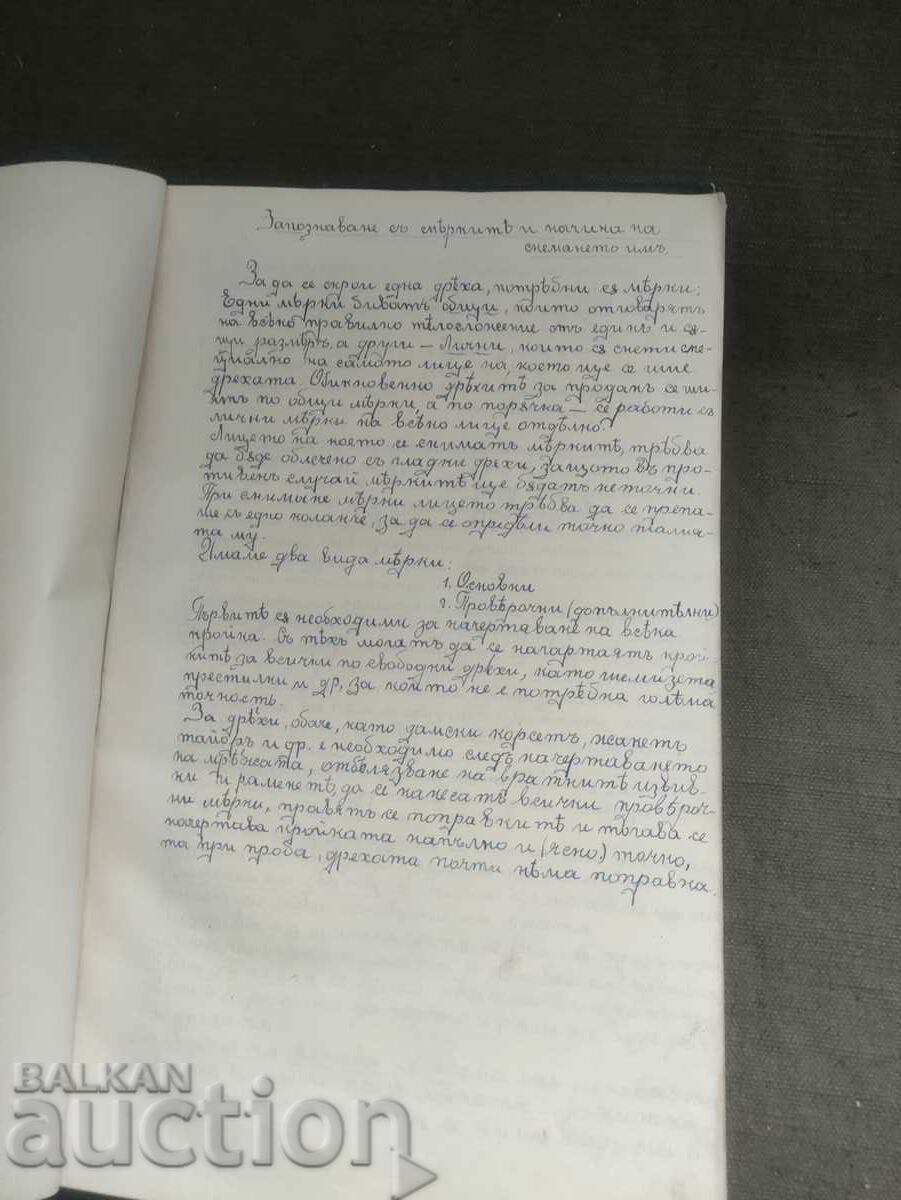 Запознаване съ мѣркитѣ и начина на
снемането имъ.
За да се скрои една дрѣха, потрѣбни сѫ мѣрки:
Едни мѣрки биватъ общи, които отговарятъ
на всѣко правилно тѣлосложение отъ единъ и сѫ-
щи размѣръ, а други – Лични, които сѫ снети спе-
циално на самото лице на, което ще се шие
дрехата. Обикновенно дрѣхитѣ за проданъ се ши-
ятъ по общи мѣрки, а по порѫчка – се работи съ
лични мѣрки на всѣко лице отдѣлно.
Лицето на което се сниматъ мѣркитѣ, трѣбва
да бѫде облечено съ гладки дрехи, защото въ про-
тивенъ случай мѣркитѣ ще бѫдатъ неточни.
При снимане мѣрки лицето трѣбва да се препа-
ше съ едно коланче, за да се опредѣли точно талия-
та му.
Имаме два вида мѣрки:
1. Основни
2. Провѣрочни (допълнитѣлни)
Първитѣ сѫ необходими за начертаване на всѣка
кройка. Съ тѣхъ могатъ да се начартаятъ крой-
китѣ за всички по свободни дрехи, като шемизета
престилки и др, за който не е потрѣбна голѣма
точность.
За дрѣхи, обаче, като дамски корсетъ, жакетъ
тайоръ и др. е необходимо следъ начертаването
на мрѣжата, отбелязване на вратнитѣ извив-
ки и раменетѣ, да се нанесатъ всички провѣроч-
ни мѣрки, правятъ се поправкитѣ и тогава се
начертава кройката напълно и (ясно) точно,
та при проба, дрехата почти нѣма поправка.
BALKAN
auction